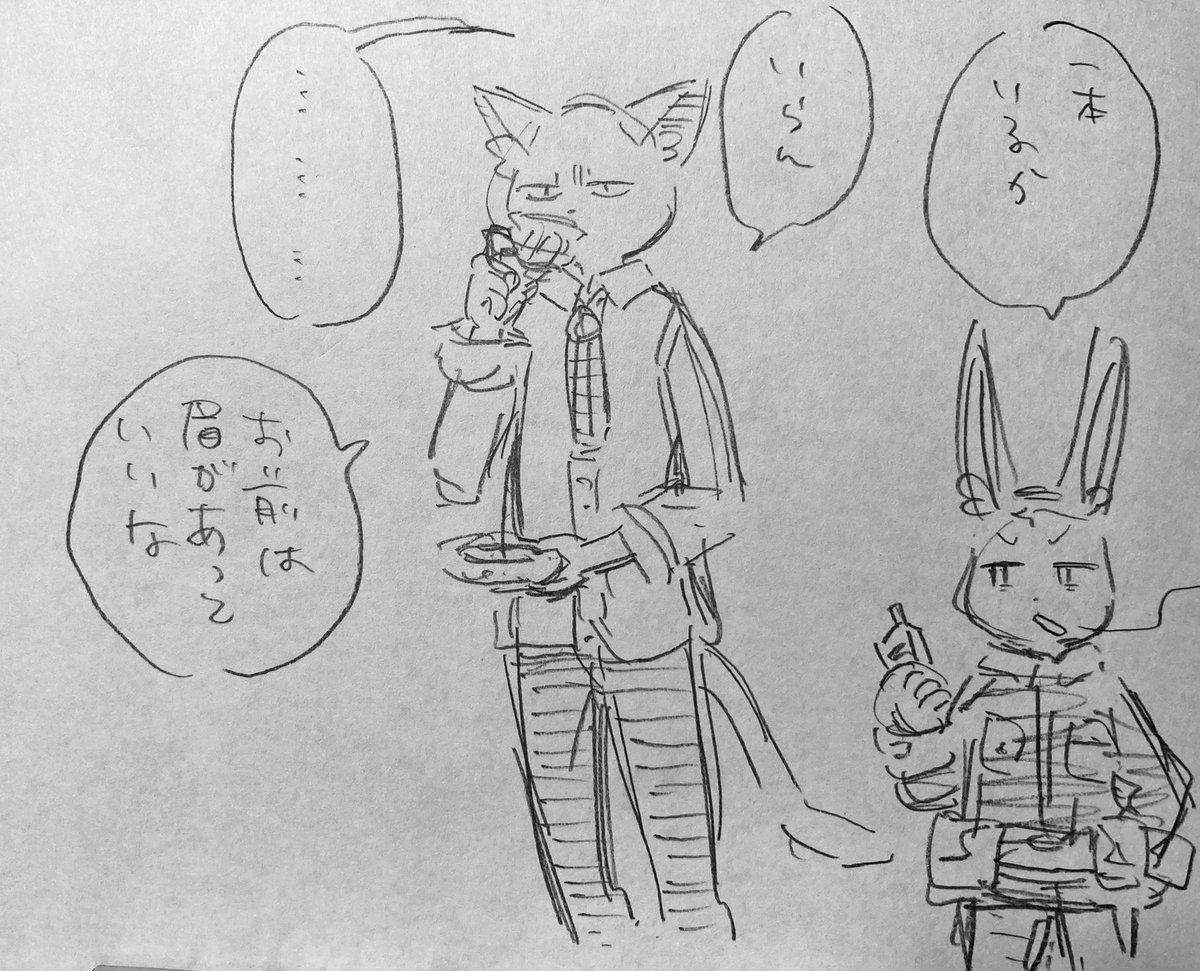 一本
いるか
いらん
………
お前は
眉があって
いいな